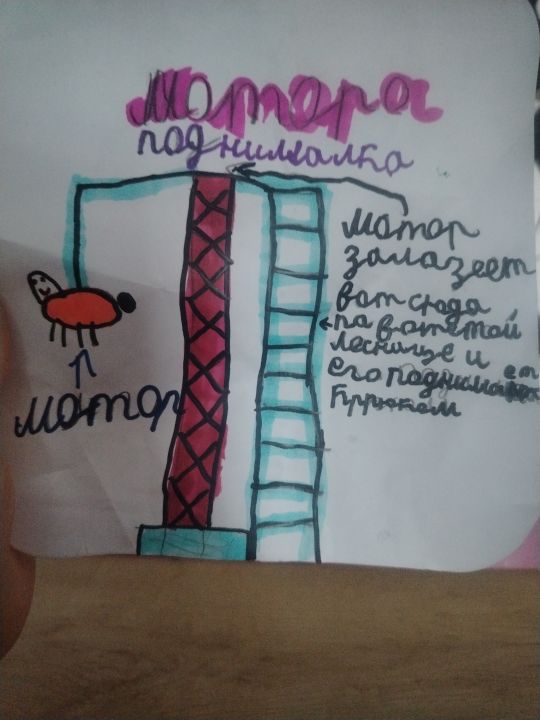 Мотора
поднималка
мотор
залазеет
вот сюда
па вот этой
леснице и
его поднимает
Гррюком
мотор